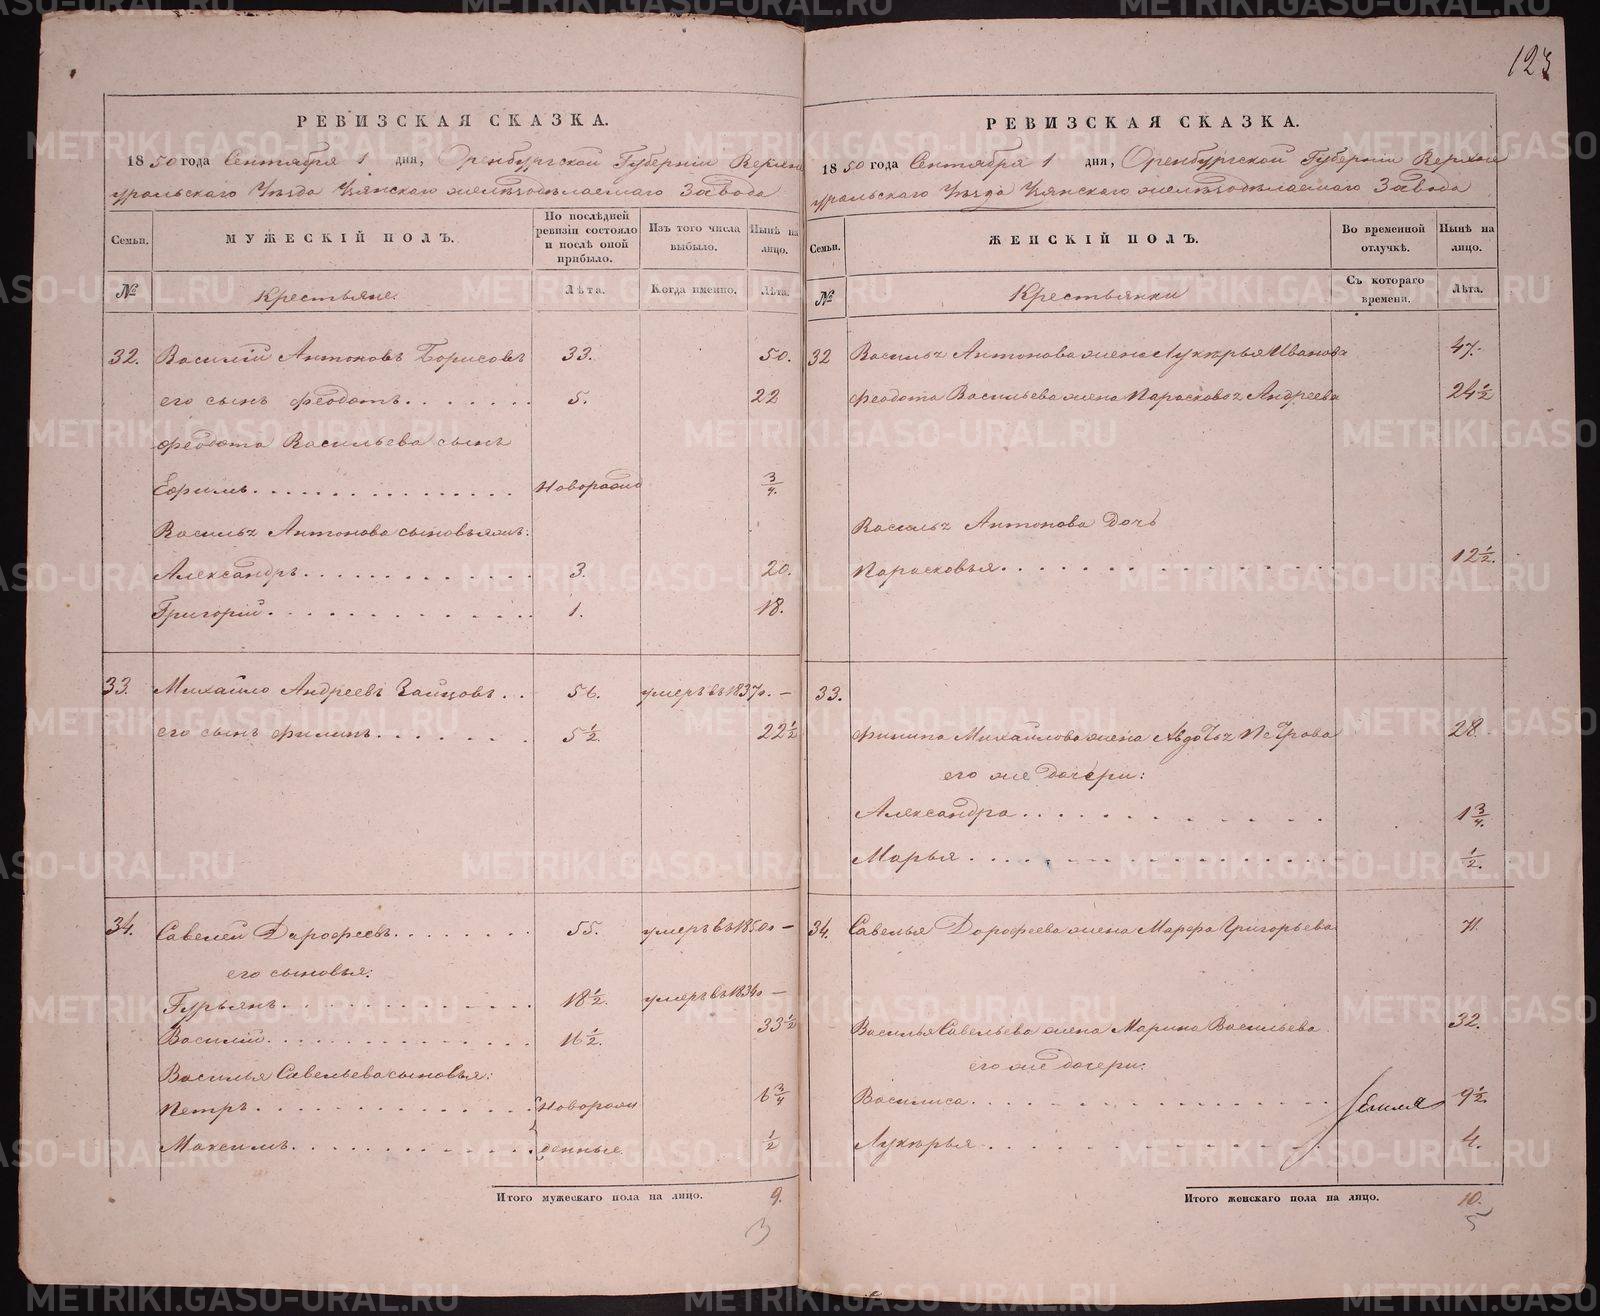 123
РЕВИЗСКАЯ СКАЗКА.
1850 года Сентября 1 дня, Оренбургской Губернии Верхне
уральскаго Уѣзда Узянскаго желѣзодѣлаемаго Завода
Семьи.
МУЖЕСКІЙ ПОЛЪ.
По послѣдней ревизіи состояло и послѣ оной прибыло.
Изъ того числа выбыло.
Нынѣ на лицо.
№
Крестьяне.
Лѣта.
Когда именно.
Лѣта.
32. Василій Антоновъ Борисовъ 33. 50.
его сынъ Феодотъ 5. 22
Феодота Васильева сынъ
Ефимъ Новорожд 3/4.
Василья Антонова сыновья:
Александръ 3. 20.
Григорій 1. 18.
33. Михайло Андреевъ Зайцовъ 56. умеръ въ 1837г. —
его сынъ Филипъ 5 1/2. 22 1/2
34. Савелей Дарофеевъ 55. умеръ въ 1850г —
его сыновья:
Гурьянъ 18 1/2. умеръ въ 1834г —
Василій 16 1/2. 33 1/2
Василья Савельева сыновья:
Петръ Новорож 6 3/4
Максимъ денные. 1/2
Итого мужескаго пола на лицо. 9.
3
РЕВИЗСКАЯ СКАЗКА.
1850 года Сентября 1 дня, Оренбургской Губернии Верхне
уральскаго Уѣзда Узянскаго желѣзодѣлаемаго Завода
Семьи.
ЖЕНСКІЙ ПОЛЪ.
Во временной отлучкѣ.
Нынѣ на лицо.
№
Крестьянки
Съ котораго времени.
Лѣта.
32 Василья Антонова жена Лукѣрья Иванова 47.
Феодота Васильева жена Парасковья Андреева 24 1/2
Василья Антонова Дочь
Парасковья 12 1/2.
33.
Филипа Михайлова жена Авдотья Петрова 28.
его же дочери:
Александра 1 3/4.
Марья 1/2.
34. Савелья Дорофеева жена Марфа Григорьева 71.
Василья Савельева жена Марина Васильева 32.
его же дочери:
Василиса 9 1/2
Лукѣрья 4.
Итого женскаго пола на лицо. 10.
5
METRIKI.GASO-URAL.RU